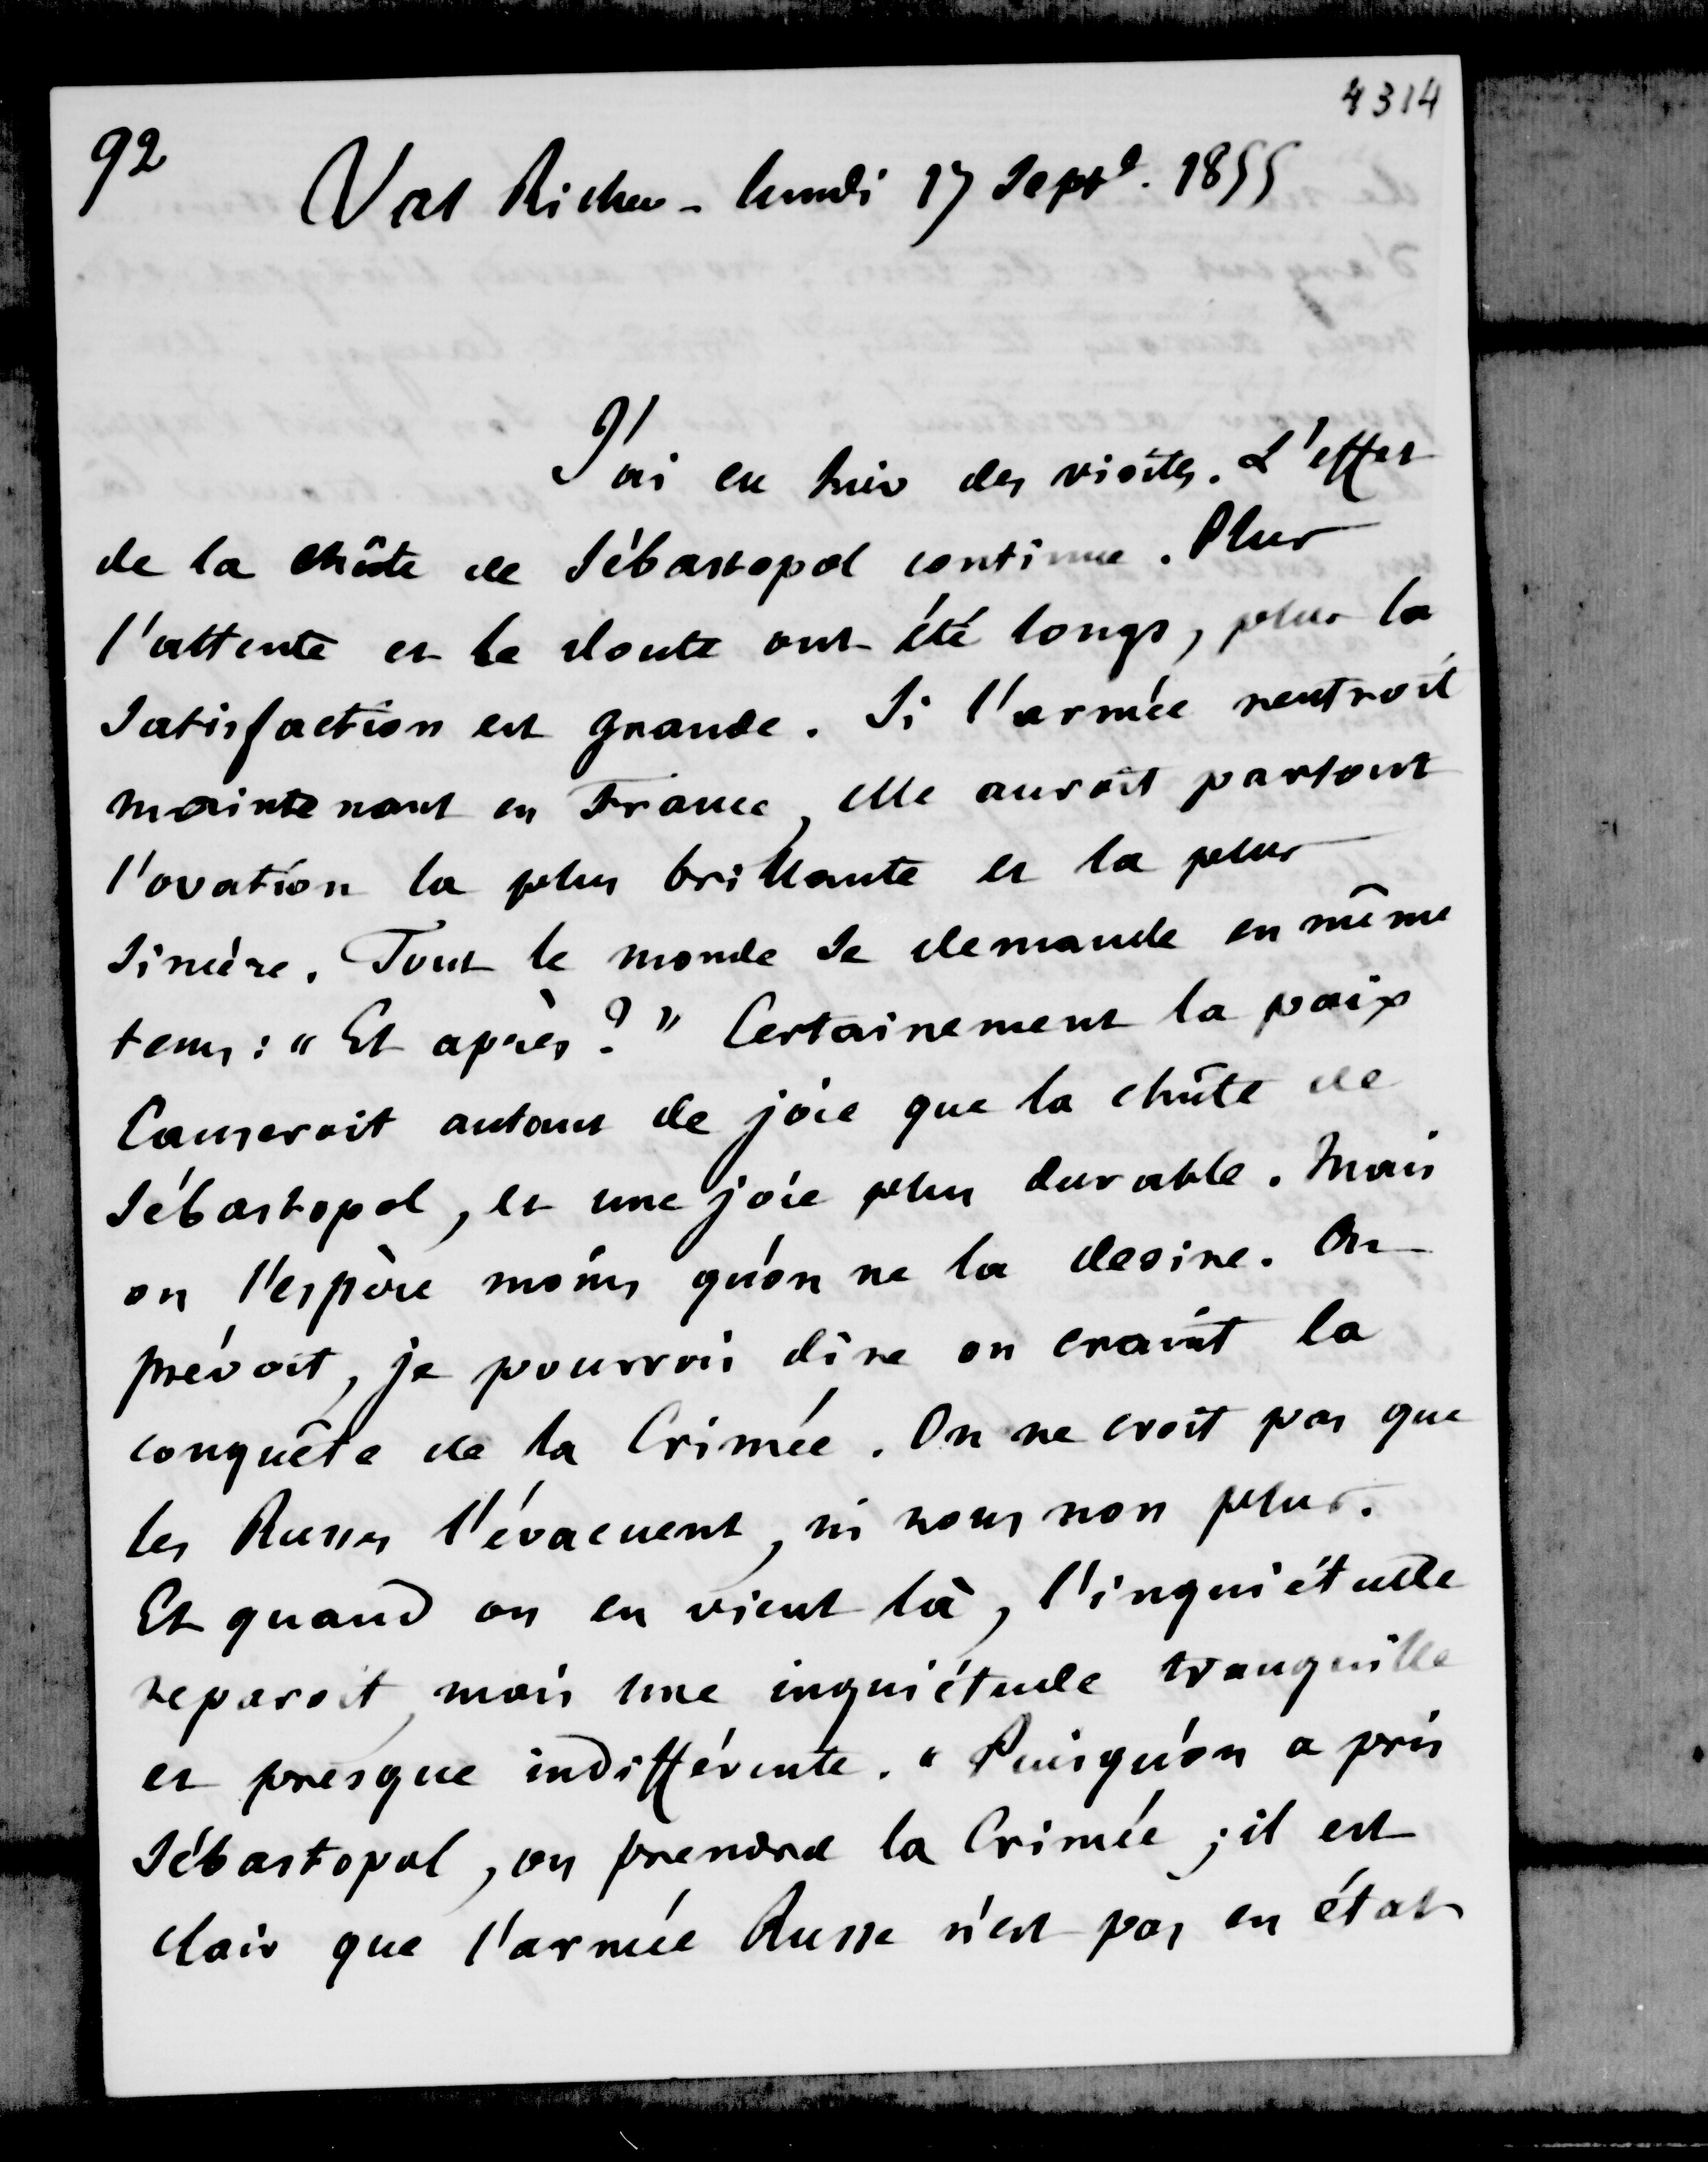 4314
92
Val Richer - lundi 17 Sept. 1855
J'ai eu hier des visites. L'effet
de la chûte de Sébastopol continue. Plus
l'attente et le doute ont été longs, plus la
satisfaction est grande. Si l'armée rentroit
maintenant en France, elle auroit partout
l'ovation la plus brillante et la plus
sincère. Tout le monde se demande en même
tems : "Et après ?" Certainement la paix
Causeroit autant de joie que la chûte de
Sébastopol, et une joie plus durable. Mais
on l'espère moins qu'on ne la desire. On
prévoit, je pourrois dire on craint la
conquête de la Crimée. On ne croit pas que
les Russes l'évacuent, ni nous non plus.
Et quand on en vient là, l'inquiétude
reparoit, mais une inquiétude tranquille
et presque indifférente. "Puisqu'on a pris
Sébastopol, on prendra la Crimée ; il est
clair que l'armée Russe n'est pas en état